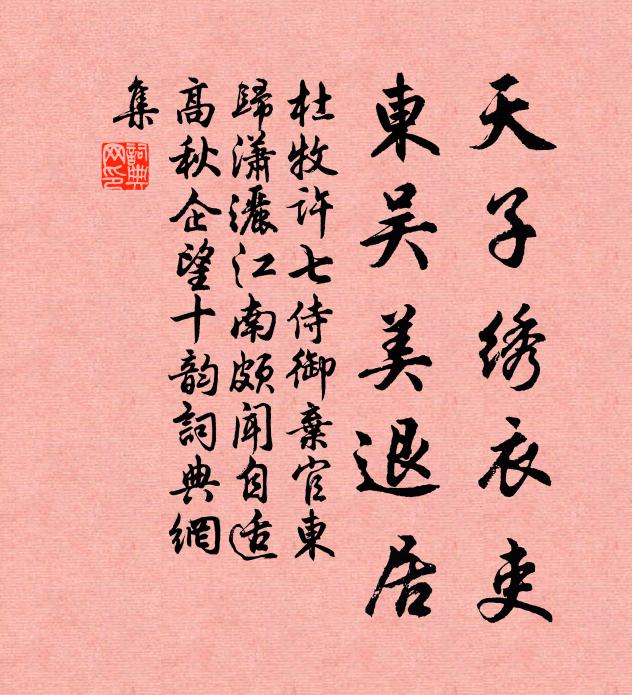 天子绣衣吏
東吴美退居
杜牧許七侍御棄官東
歸瀟灑江南頗聞自适
高秋企望十韵詞典網
集
詞典
网印